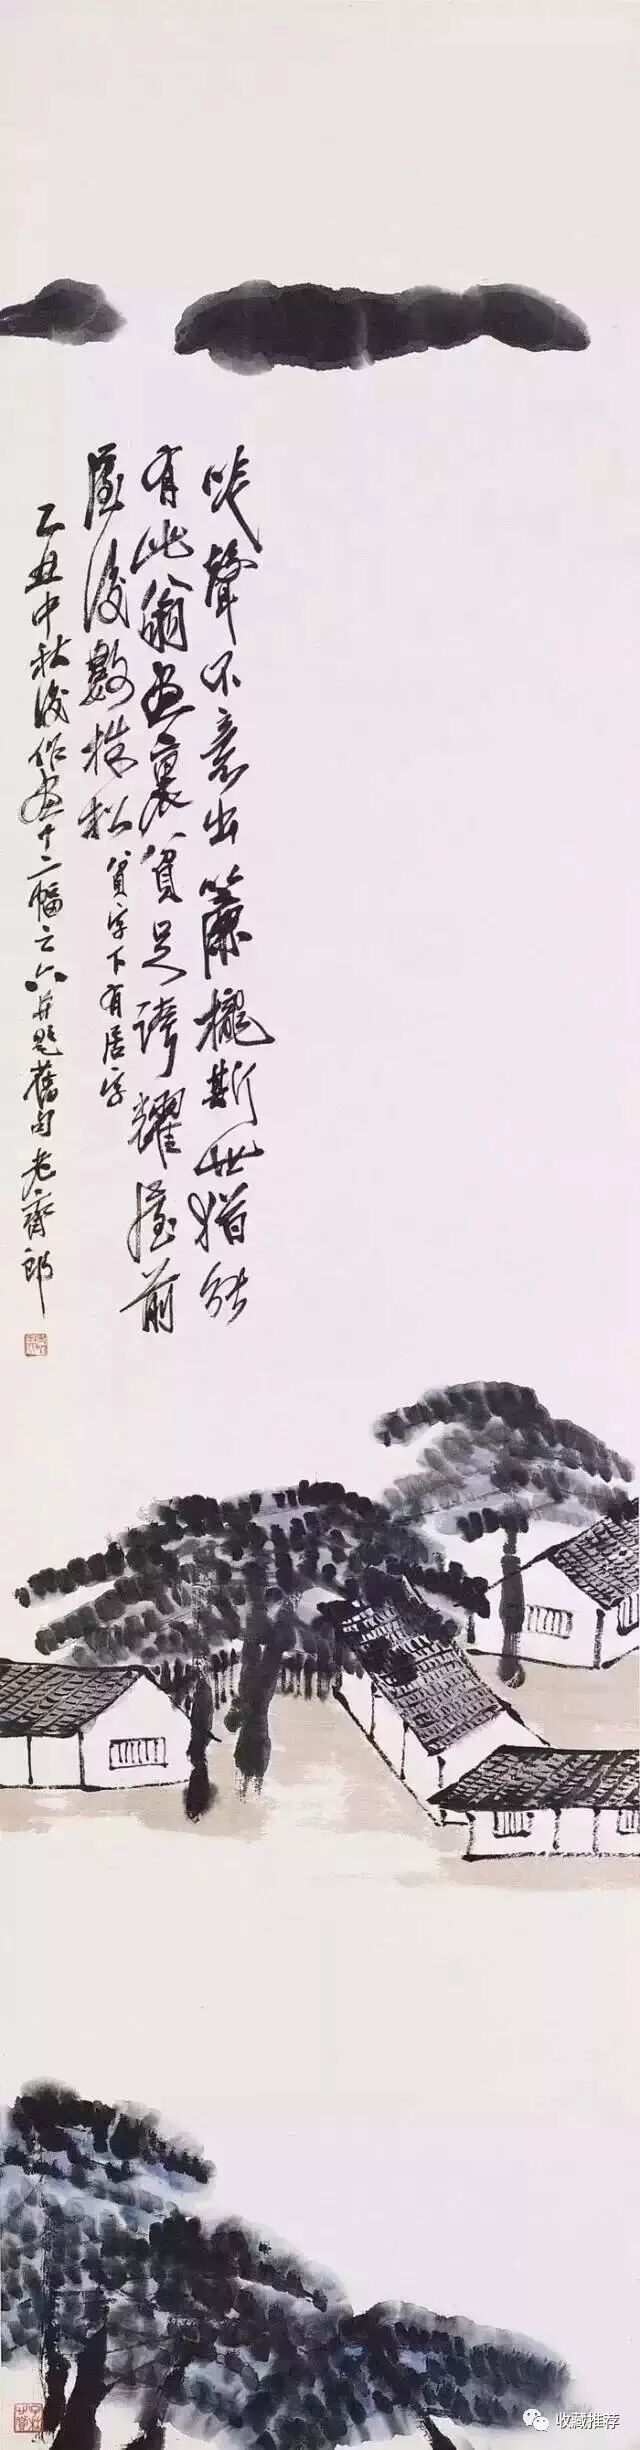 咲聲不意出簾櫳斯世猶能
有此翁畫裏貧足誇耀屋前
屋後數株松 貧字下有居字
乙丑中秋後作畫十二幅之六并題舊句老齊郎
收藏推荐